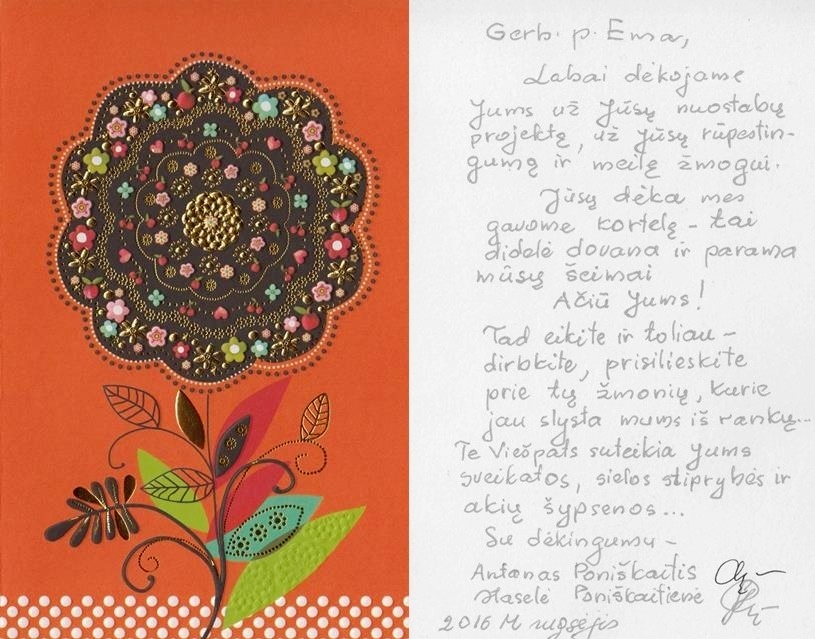 Gerb. p. Ema,
Labai dėkojame
Jums už Jūsų nuostabų
projektą, už Jūsų rūpestin-
gumą ir meilę žmogui.
Jūsų dėka mes
gavome kortelę - tai
didelė dovana ir parama
mūsų šeimai
Ačiū Jums!
Tad eikite ir toliau -
dirbkite, prisilieskite
prie tų žmonių, kurie
jau slysta mums iš rankų...
Te Viešpats suteikia Jums
sveikatos, sielos stiprybės ir
akių šypsenos...
Su dėkingumu -
Antanas Poniškaitis
Staselė Poniškaitienė
2016 M rugsėjis